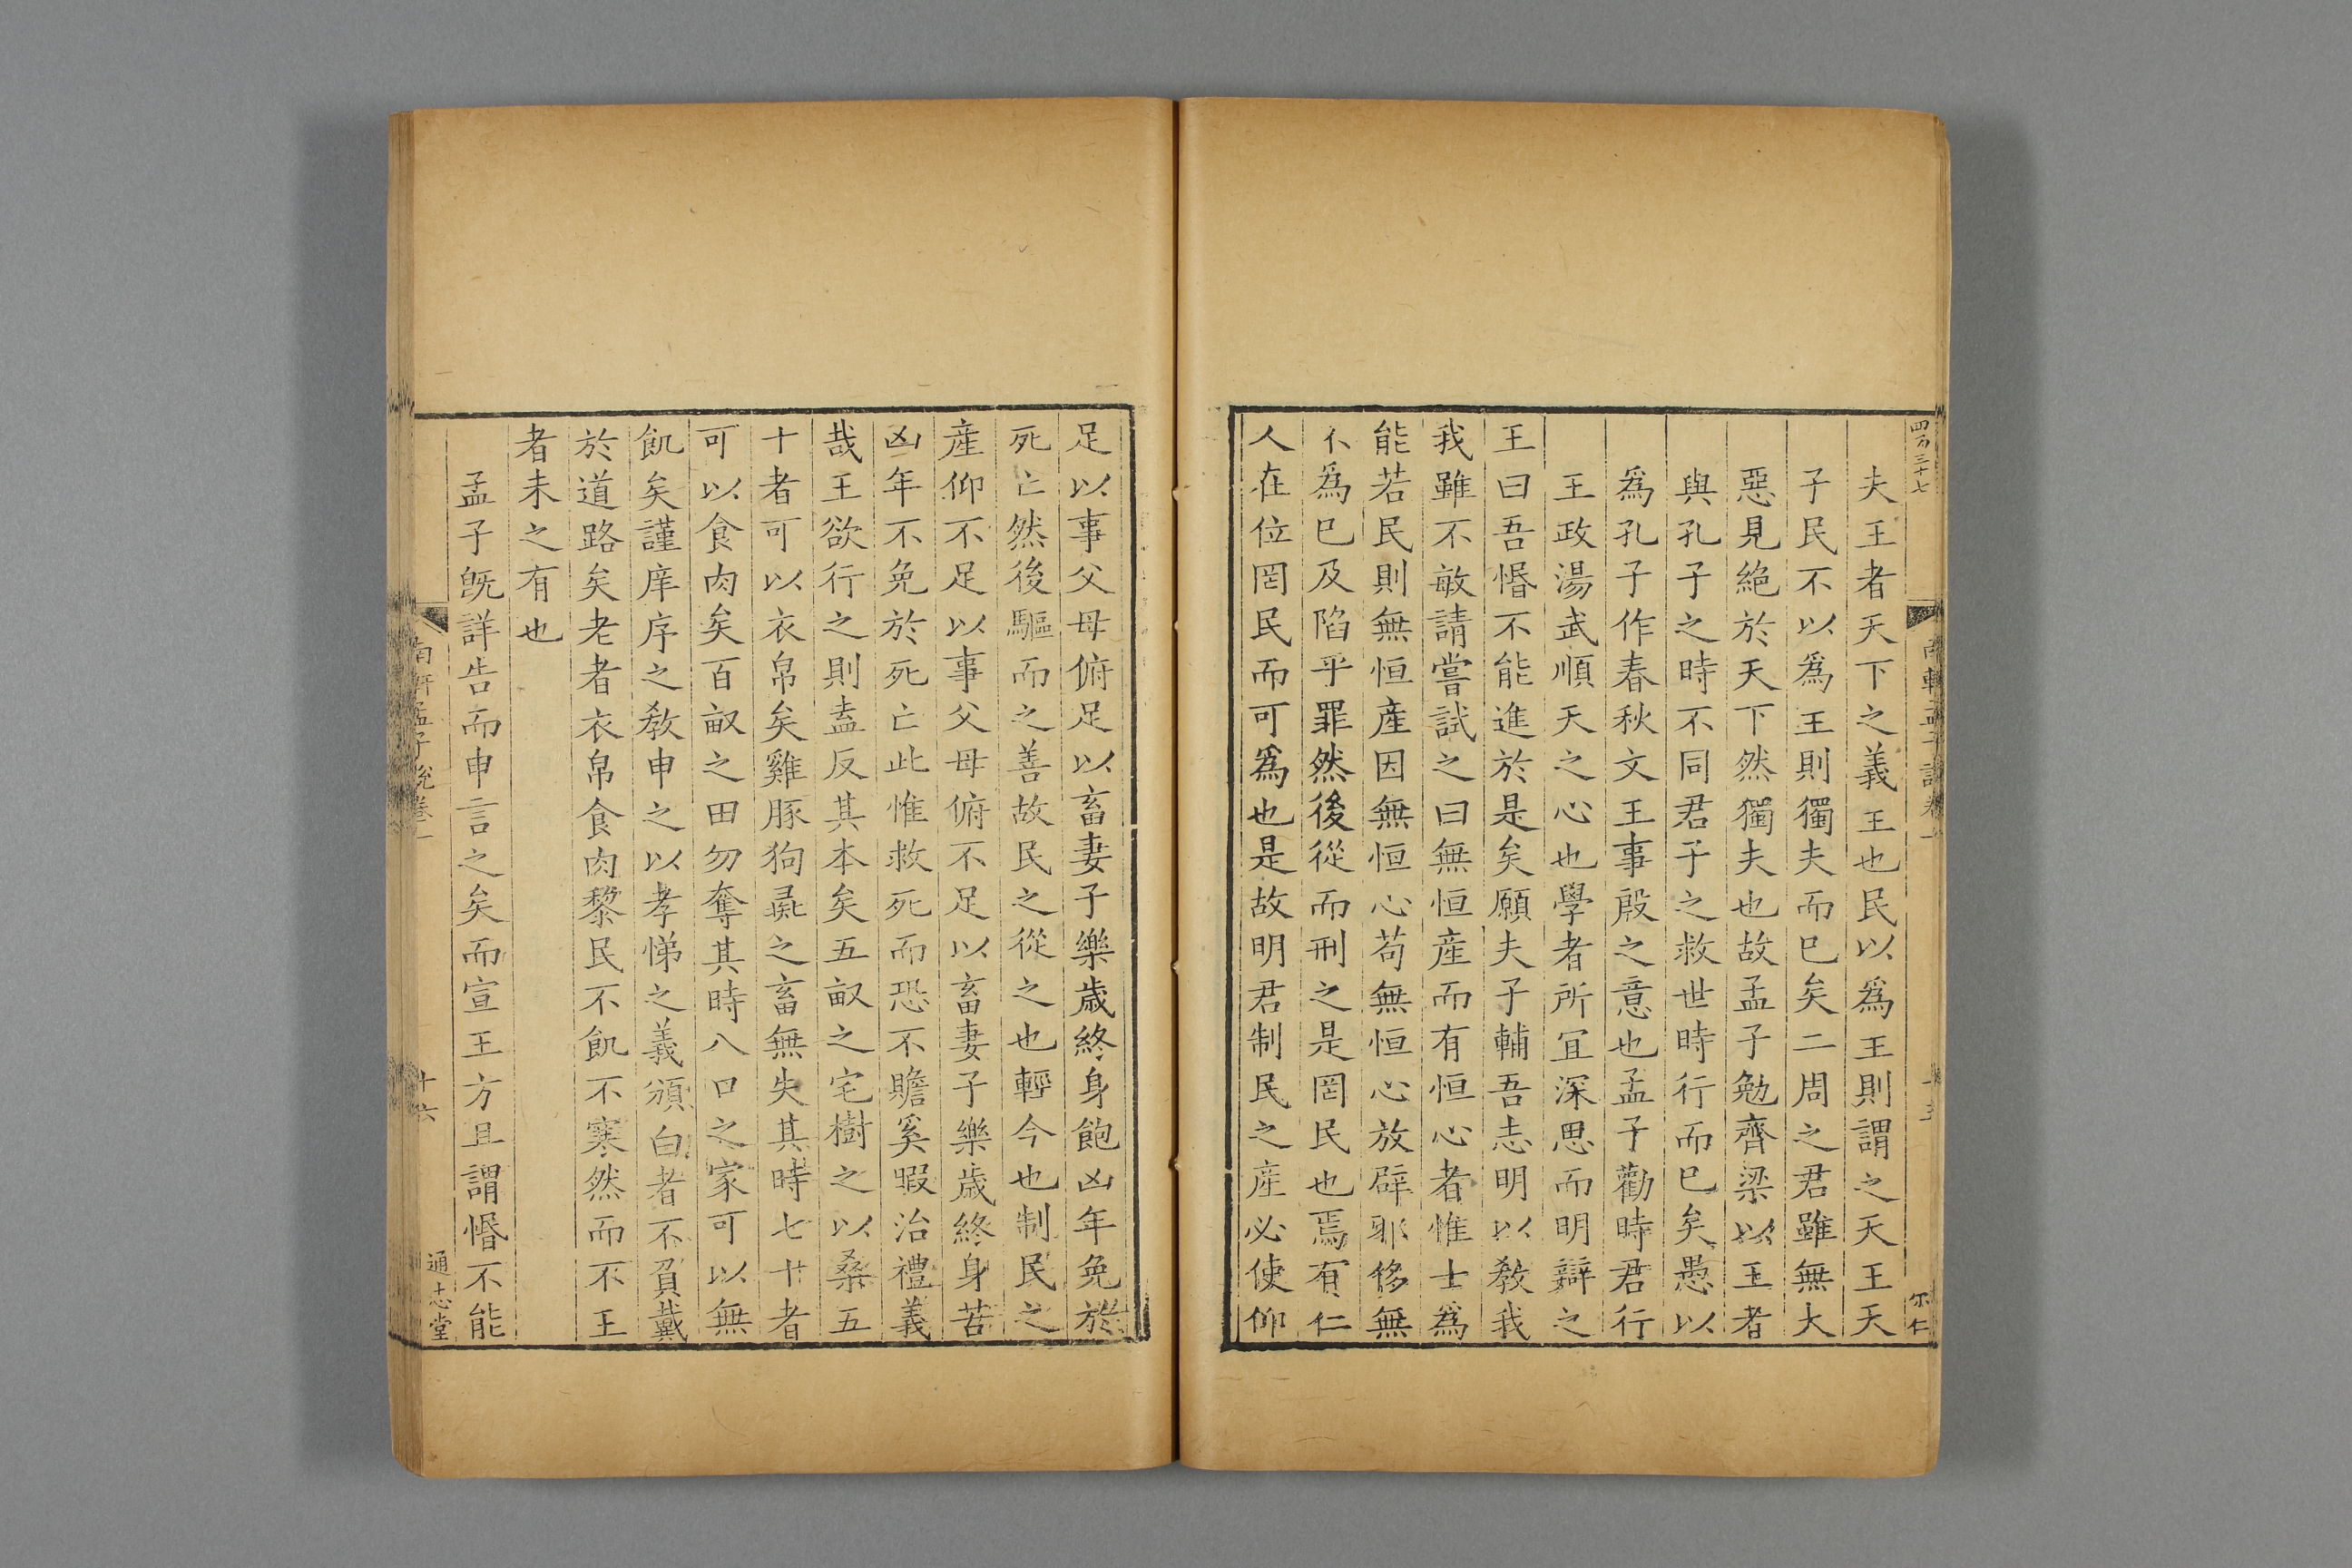 四百三十七
夫王者天下之義王也民以爲王則謂之天王天
子民不以爲王則獨夫而巳矣二周之君雖無大
惡見絕於天下然獨夫也故孟子勉齊梁以王者
與孔子之時不同君子之救世時行而巳矣愚以
爲孔子作春秋文王事殷之意也孟子勸時君行
王政湯武順天之心也學者所宜深思而明辯之
王曰吾惛不能進於是矣願夫子輔吾志明以敎我
我雖不敏請嘗試之曰無恒産而有恒心者惟士爲
能若民則無恒産因無恒心苟無恒心放辟邪侈無
不爲巳及陷乎罪然後從而刑之是罔民也焉有仁
人在位罔民而可爲也是故明君制民之産必使仰
足以事父母俯足以畜妻子樂歲終身飽凶年免於
死亡然後驅而之善故民之從之也輕今也制民之
産仰不足以事父母俯不足以畜妻子樂歲終身苦
凶年不免於死亡此惟救死而恐不贍奚暇治禮義
哉王欲行之則盍反其本矣五畝之宅樹之以桑五
十者可以衣帛矣雞豚狗彘之畜無失其時七十者
可以食肉矣百畝之田勿奪其時八口之家可以無
飢矣謹庠序之敎申之以孝悌之義頒白者不負戴
於道路矣老者衣帛食肉黎民不飢不寒然而不王
者未之有也
孟子旣詳告而申言之矣而宣王方且謂惛不能
南軒孟子說卷一
十六
通志堂